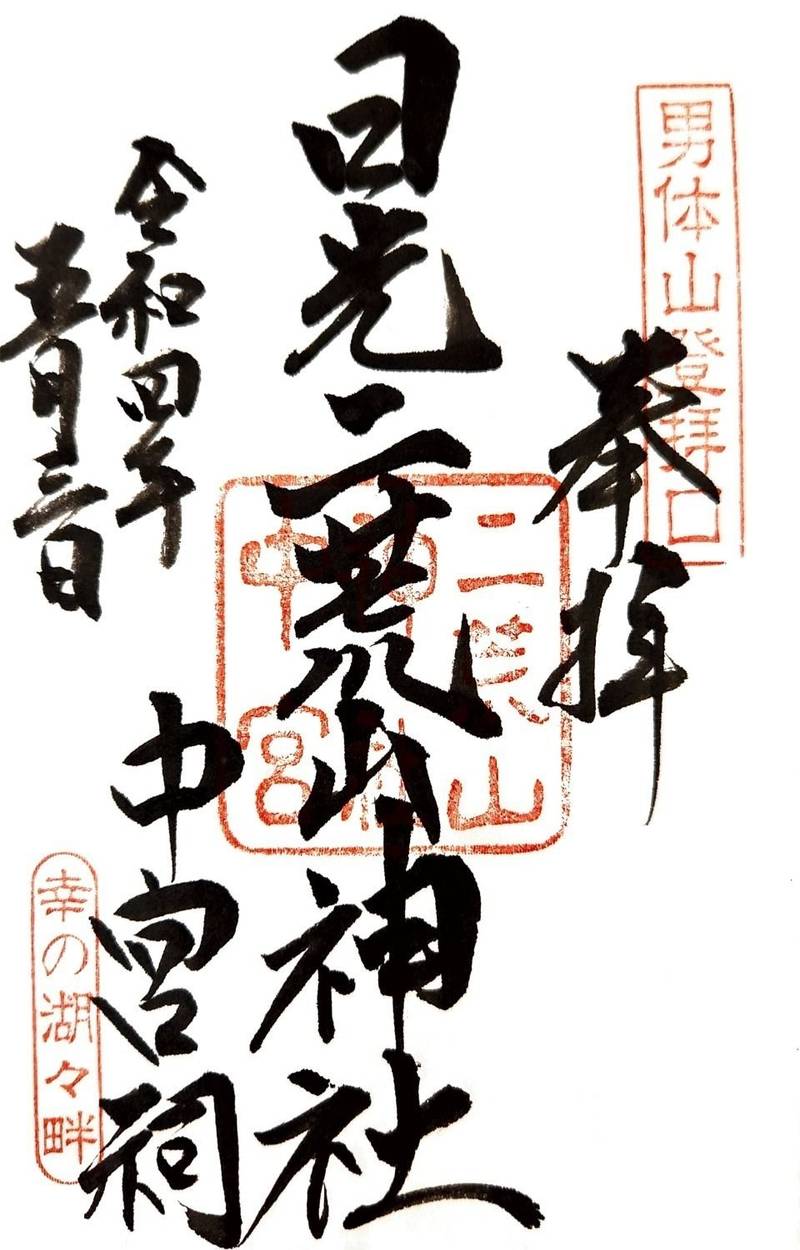 男体山登拝口
奉拝
日光二荒山神社
中宮祠
令和四年
五月三日
幸の湖々畔